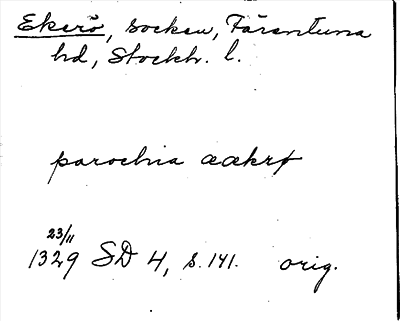 Ekerö, socken, Färentuna
hd, Stockh. l.
parochia ækrø
23/11
1329 SD 4, s. 141. orig.